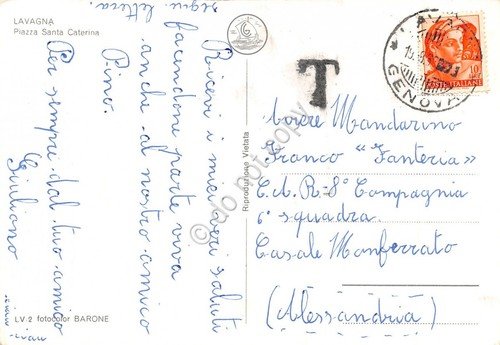 LAVAGNA
Piazza Santa Caterina
Ricevi i miei veri saluti
facendone parte viva
anche al nostro amico
Pino.
Per sempre dal tuo amico
Giuliano
ciao
ciao
segue lettera.
L.V.2 fotocolor BARONE
Riproduzione Vietata
T
LAVAGNA
GENOVA
10
POSTE ITALIANE
Aviere Mandarino
Franco "Fanteria"
C.A.R. 8° Compagnia
6° squadra
Casale Monferrato
(Alessandria)
do not copy